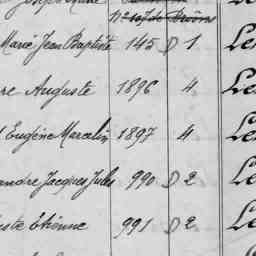 Marie Jean Baptiste 145 D 1 Le
re Auguste 1896 4 Le
Eugène Marcelin 1897 4 Le
andre Jacques Jules 990 D 2 Le
uste Etienne 991 D 2 Le